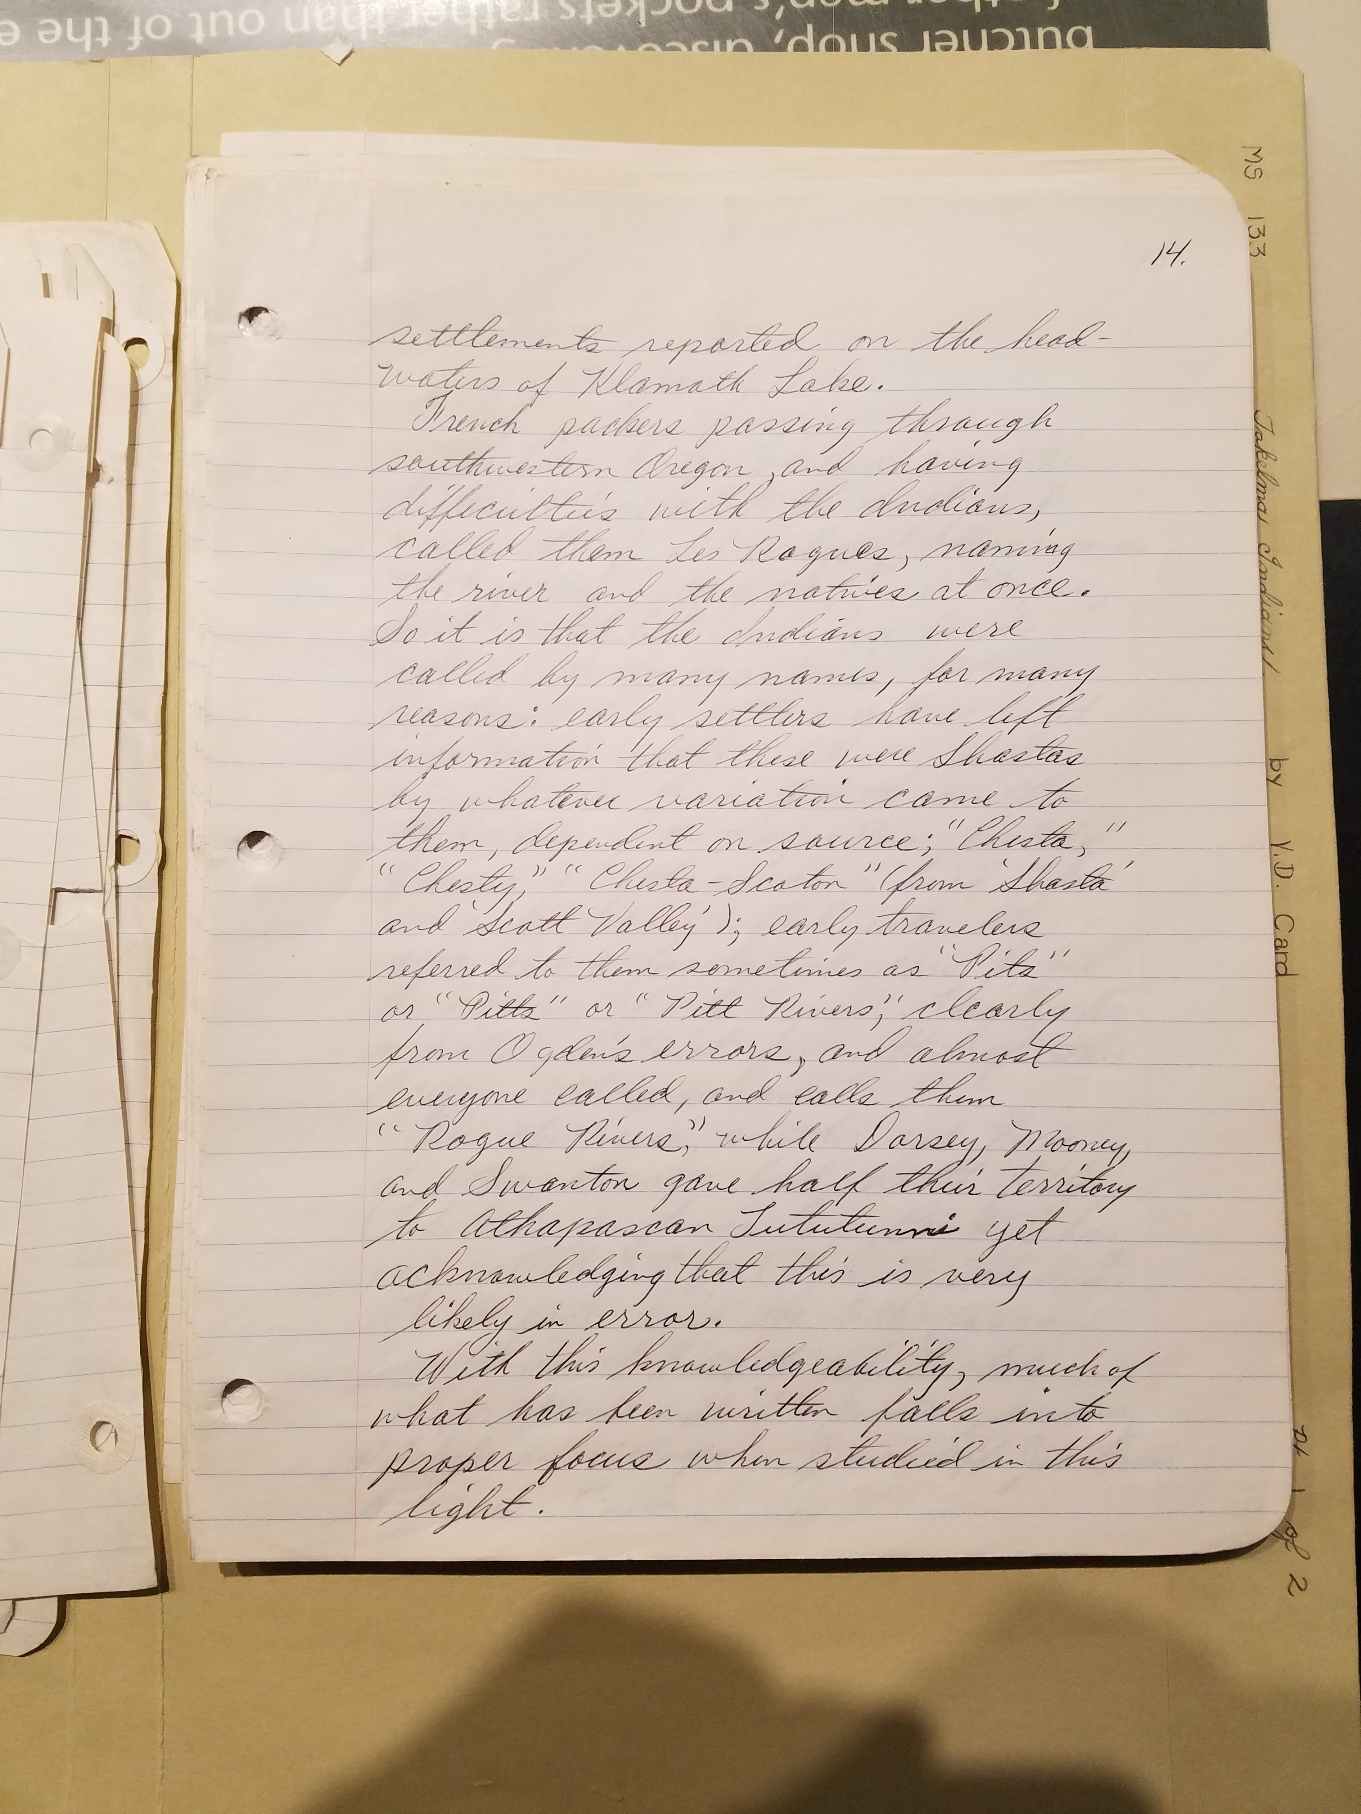 butcher shop, discovering
father men's pockets rather than out of the e
MS 133 Takelma Indians! by Y.D. Card pt 1 of 2
14.
settlements reported on the head-
waters of Klamath Lake.
French packers passing through
southwestern Oregon, and having
difficulties with the Indians,
called them Les Rogues, naming
the river and the natives at once.
So it is that the Indians were
called by many names, for many
reasons: early settlers have left
information that these were Shastas
by whatever variation came to
them, dependent on source; "Chesta,"
"Chesty," "Chesta-Scoton" (from 'Shasta'
and 'Scott Valley'); early travelers
referred to them sometimes as "Pits"
or "Pitts" or "Pitt Rivers," clearly
from Ogden's errors, and almost
everyone called, and calls them
"Rogue Rivers," while Dorsey, Mooney,
and Swanton gave half their territory
to Athapascan Tututunni yet
acknowledging that this is very
likely in error.
With this knowledgeability, much of
what has been written falls into
proper focus when studied in this
light.